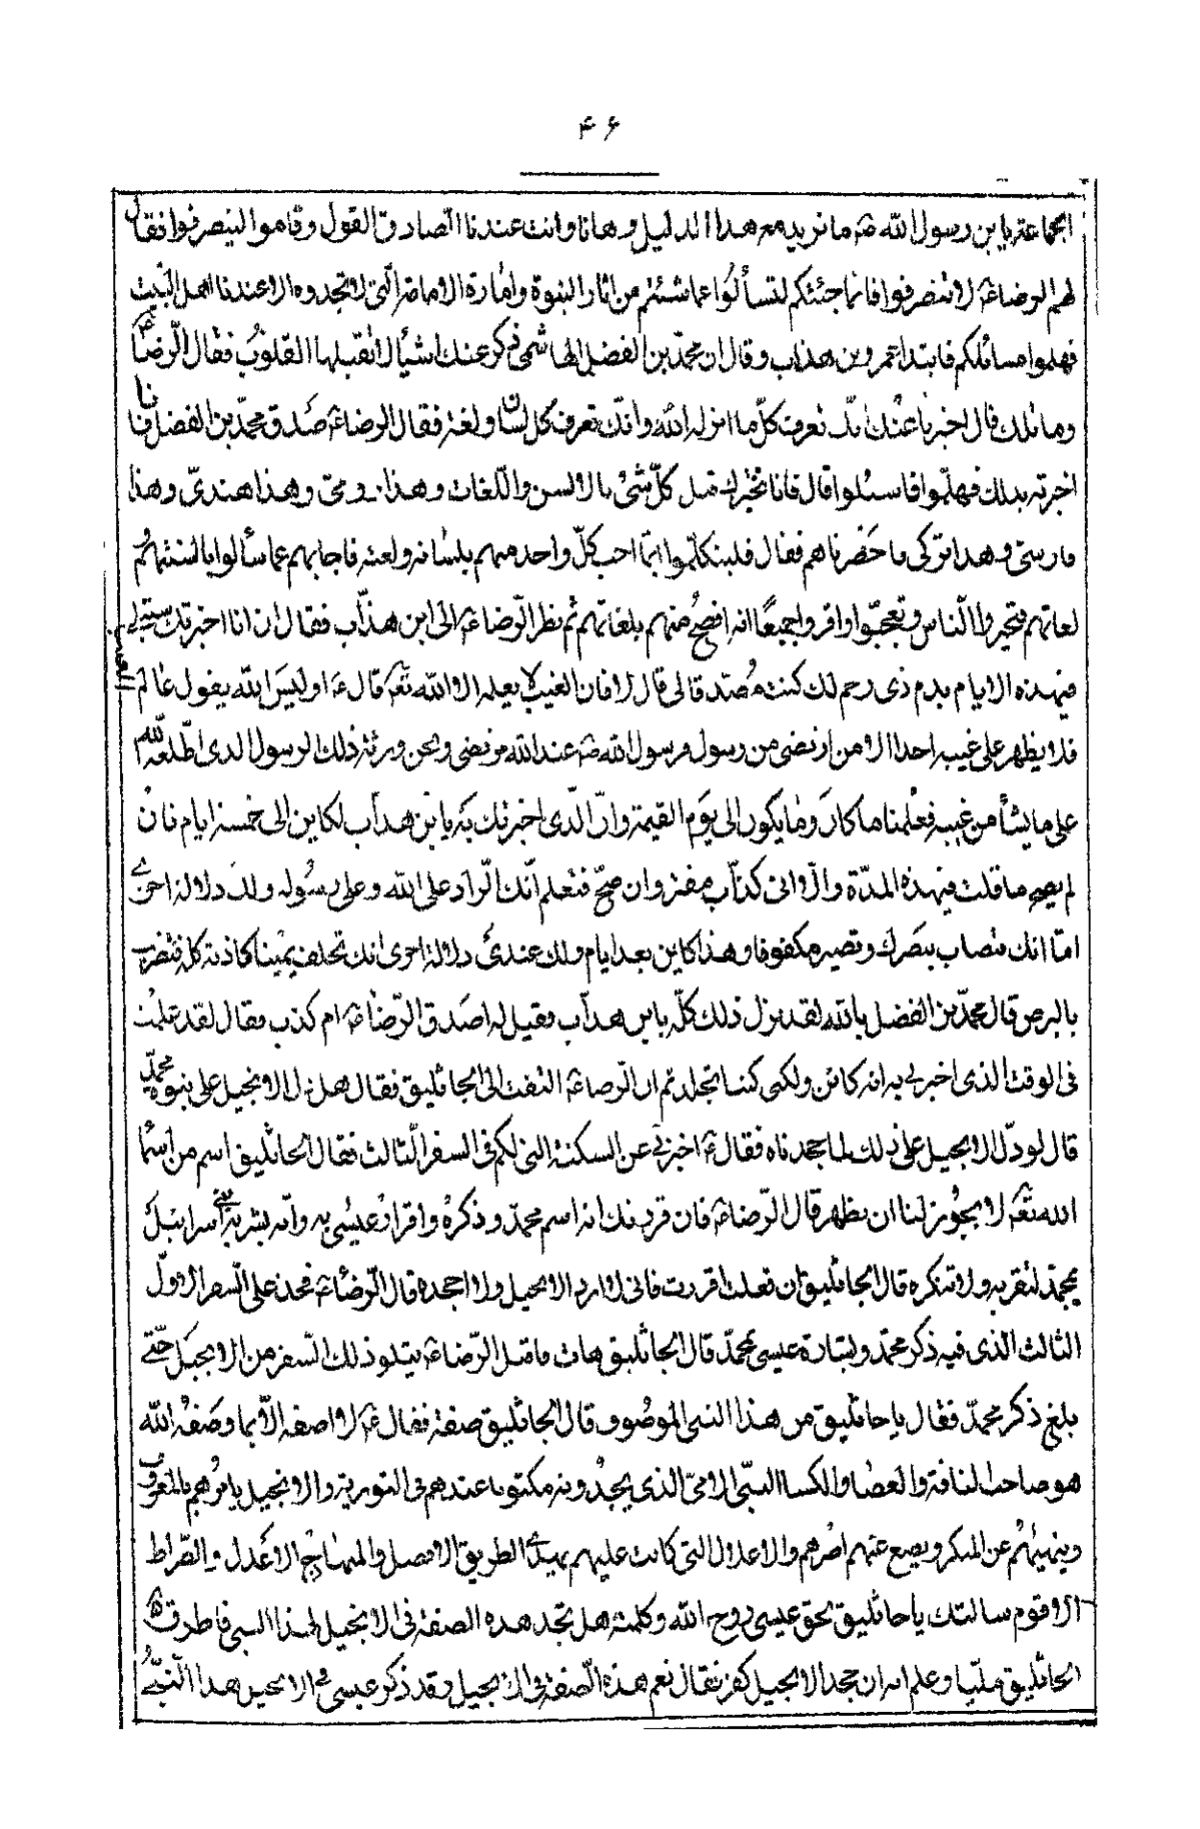 ۴۶
الجماعة يا بن رسول الله ص ما نريد مع هذا الدليل برهانا وانت عندنا الصادق القول وقاموا لينصرفوا فقال
لهم الرضا ع لا تنصرفوا فانما جئتكم لتسألوا عما شئتم من اثار النبوة وامارة الامامة التي لا تجدوه الا عندنا اهل البيت
فهلموا مسائلكم فابتدا عمرو بن هذاب وقال ان محمد بن الفضل الهاشمي ذكر عنك اشياء لا تقبلها القلوب فقال الرضا ع
وما تلك قال اخبرنا عنك انك تعرف كلما انزله الله وانك تعرف كل لسان ولغة فقال الرضا ع صدق محمد بن الفضل فانا
اخبرته بذلك فهلموا فاسئلوا قال فانا نختبرك قبل كل شئ بالالسن واللغات وهذا رومي وهذا هندي وهذا
فارسي وهذا تركي ما حضرناهم فقال فليتكلموا بما احب كل واحد منهم بلسانه ولغته فاجابهم عما سألوا بالسنتهم و
لغاتهم فتحير الناس وتعجبوا واقروا جميعا انه افصح منهم بلغاتهم ثم نظر الرضا ع الى ابن هذاب فقال ان انا اخبرتك ستبلى
فيهذه الايام بدم ذي رحم لك كنت مصدقا لي قال لا فان الغيب لا يعلمه الا الله تعه قال ع اوليس الله يقول عالم الغيب
فلا يظهر على غيبه احدا الا من ارتضى من رسول فرسول الله ص عند الله مرتضى ونحن ورثة ذلك الرسول الذي اطلعه الله
على ما يشأ من غيبه فعلمنا ما كان وما يكون الى يوم القيمة وان الذي اخبرتك به يا بن هذاب لكاين الى خمسة ايام فان
لم يصح ما قلت فيهذه المدة والا واني كذاب مفتر وان صح فتعلم انك الراد على الله وعلى رسوله ولك دلالة اخرى
اما انك ستصاب ببصرك وتصير مكفوفا وهذا كاين بعد ايام ولك عندي دلالة اخرى انك تحلف يمينا كاذبة كله فتضرب
بالبرص قال محمد بن الفضل بالله لقد نزل ذلك كله بابن هذاب فقيل له اصدق الرضا ع ام كذب فقال لقد علمت
في الوقت الذي اخبرني به انه كائن ولكني كنت اتجلد ثم ان الرضا ع التفت الى الجاثليق فقال هل دل الانجيل على نبوة محمد
قال لو دل الانجيل على ذلك لما جحدناه فقال ع اخبرني عن السكنة التي لكم في السفر الثالث فقال الجاثليق اسم من اسما
الله تعه لا يجوز لنا ان نظهره قال الرضا ع فان قررتك انه اسم محمد وذكره واقرار عيسى به وانه بشر به بني اسرائيل
بمحمد لتقر به ولا تنكره قال الجاثليق ان فعلت اقررت فاني لا ارد الانجيل ولا اجحده قال الرضا ع فخذ على السفر الاول
الثالث الذي فيه ذكر محمد وبشارة عيسى بمحمد قال الجاثليق هات فاقبل الرضا ع يتلو ذلك السفر من الانجيل حتى
بلغ ذكر محمد فقال يا جاثليق من هذا النبي الموصوف قال الجاثليق صفه فقال ع لا اصفه الا بما وصفه الله
هو صاحب الناقة والعصا والكسا النبي الامي الذي يجدونه مكتوبا عندهم في التورية والانجيل يامرهم بالمعروف
وينهيهم عن المنكر ويضع عنهم اصرهم والاغلال التي كانت عليهم يهدي الطريق الافضل والمنهاج الاعدل والصراط
الاقوم سالتك يا جاثليق بحق عيسى روح الله وكلمته هل تجد هذه الصفة في الانجيل لهذا النبي فاطرق
الجاثليق مليا وعلم انه ان جحد الانجيل كفر فقال نعم هذه الصفة في الانجيل وقد ذكر عيسى في الانجيل هذا النبي